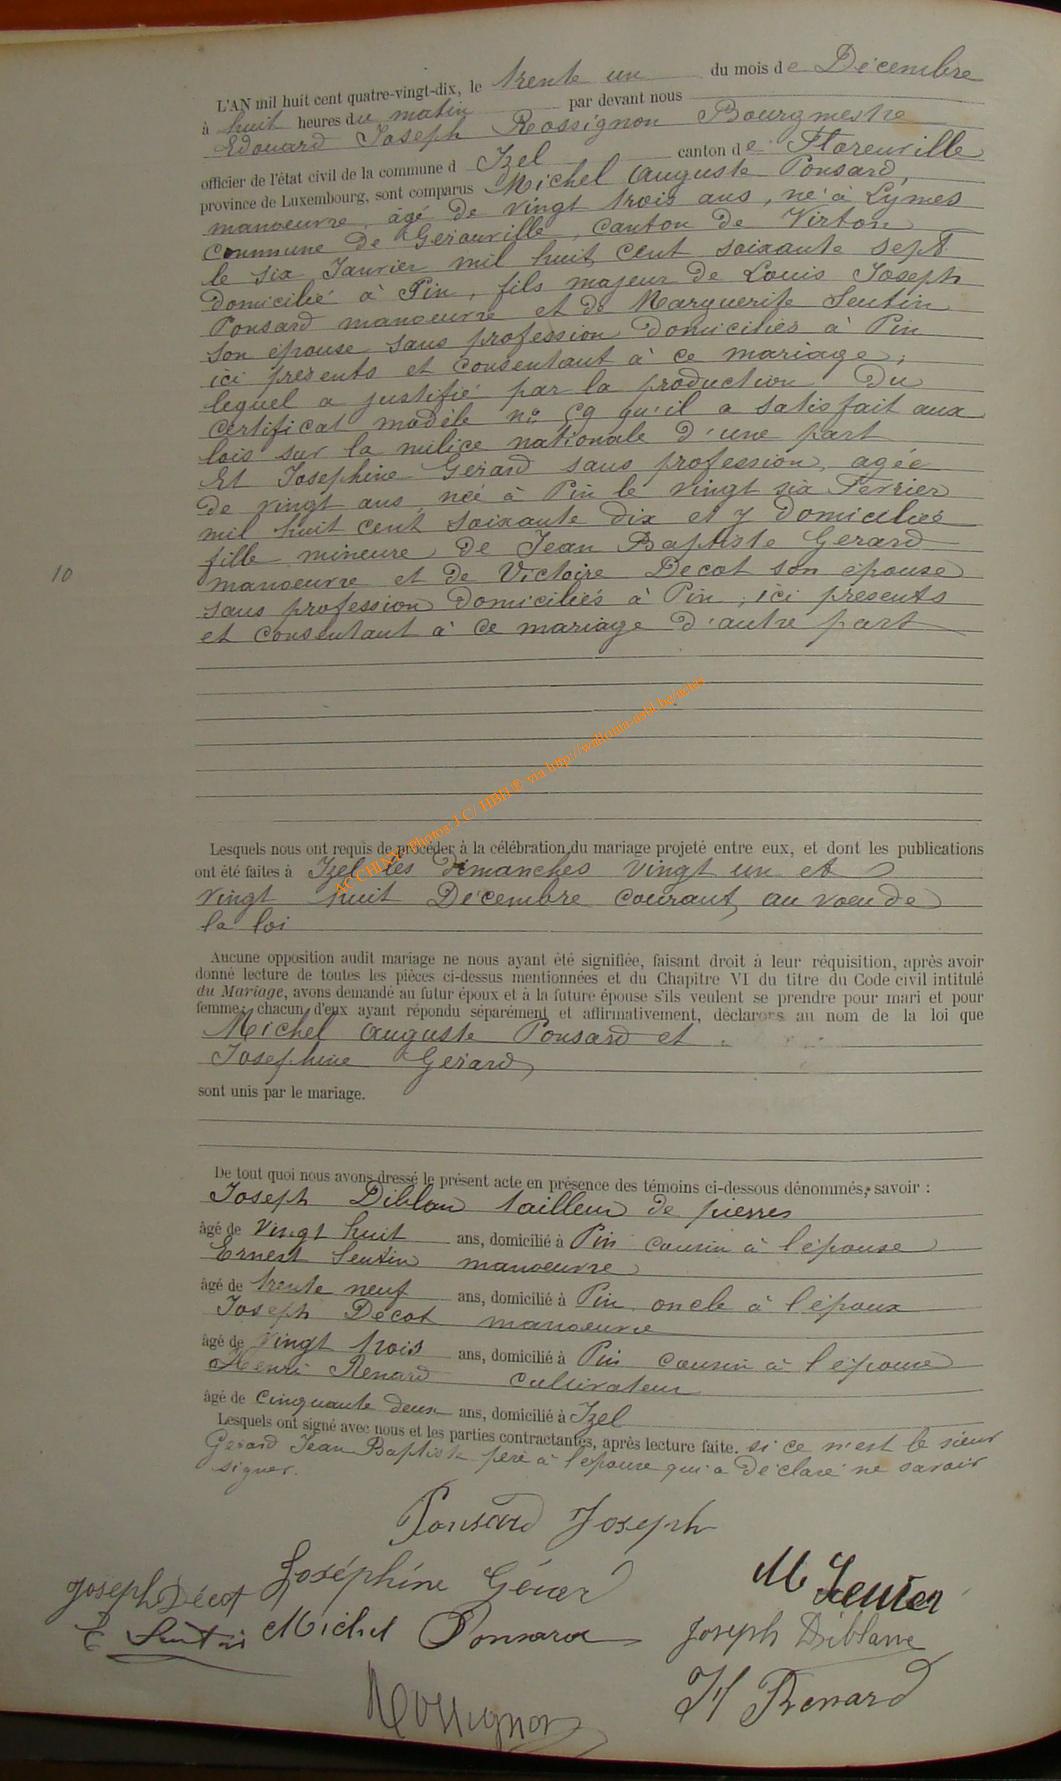 L'AN mil huit cent quatre-vingt-dix, le trente un du mois de Décembre
à huit heures du matin par devant nous
Edouard Joseph Rossignon Bourgmestre
officier de l'état civil de la commune d Izel canton de Florenville
province de Luxembourg, sont comparus Michel Auguste Ponsard,
manoeuvre, âgé de vingt trois ans, né à Lymes
commune de Gerouville, canton de Virton
le six Janvier mil huit cent soixante sept
domicilié à Pin, fils majeur de Louis Joseph
Ponsard manoeuvre et de Marguerite Sentin
son épouse sans profession domiciliés à Pin
ici présents et consentant à ce mariage;
lequel a justifié par la production du
certificat modèle n° qu'il a satisfait aux
lois sur la milice nationale d'une part
Et Josephine Gerard sans profession, agée
de vingt ans, née à Pin le vingt six Fevrier
mil huit cent soixante dix et y domiciliée
fille mineure de Jean Baptiste Gerard
manoeuvre et de Victoire Decot son épouse
sans profession domiciliés à Pin, ici presents
et consentant à ce mariage d'autre part
10
ACCHINY Photos J.C/ HBH® via http://wallonia-asbl.be/actes
Lesquels nous ont requis de procéder à la célébration du mariage projeté entre eux, et dont les publications
ont été faites à Izel les dimanches vingt un et
vingt huit Décembre courant, au voeu de
la loi
Aucune opposition audit mariage ne nous ayant été signifiée, faisant droit à leur réquisition, après avoir
donné lecture de toutes les pièces ci-dessus mentionnées et du Chapitre VI du titre du Code civil intitulé
du Mariage, avons demandé au futur époux et à la future épouse s'ils veulent se prendre pour mari et pour
femme; chacun d'eux ayant répondu séparément et affirmativement, déclarons au nom de la loi que
Michel Auguste Ponsard et
Josephine Gerard
sont unis par le mariage.
De tout quoi nous avons dressé le présent acte en présence des témoins ci-dessous dénommés, savoir :
Joseph Diblan tailleur de pierres
âgé de vingt huit ans, domicilié à Pin cousin à l'épouse
Ernest Sentin manoeuvre
âgé de trente neuf ans, domicilié à Pin oncle à l'époux
Joseph Décot manoeuvre
âgé de vingt trois ans, domicilié à Pin cousin à l'épouse
Henri Renard cultivateur
âgé de cinquante deux ans, domicilié à Izel
Lesquels ont signé avec nous et les parties contractantes, après lecture faite. si ce n'est le sieur
Gerard Jean Baptiste père à l'épouse qui a déclaré ne savoir
signer.
Ponsard Joseph
Joséphine Gérard
Joseph Décot
E Sentin Michel Ponsard Joseph Diblane
Rossignon H Renard